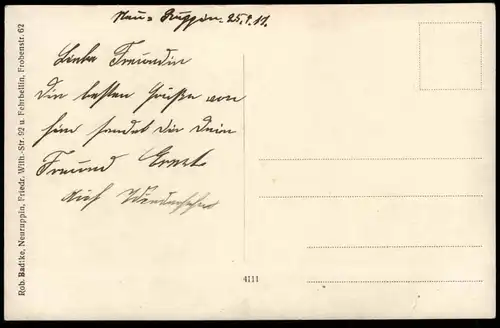 Neu-Ruppin. 25.9.17.
Liebe Freundin
Die besten Grüße von
hier sendet dir Dein
Freund Ernst
Auf Wiedersehn
4111
Rob. Badtke, Neuruppin, Friedr. Wilh.-Str. 92 u. Fehrbellin, Frobenstr. 62